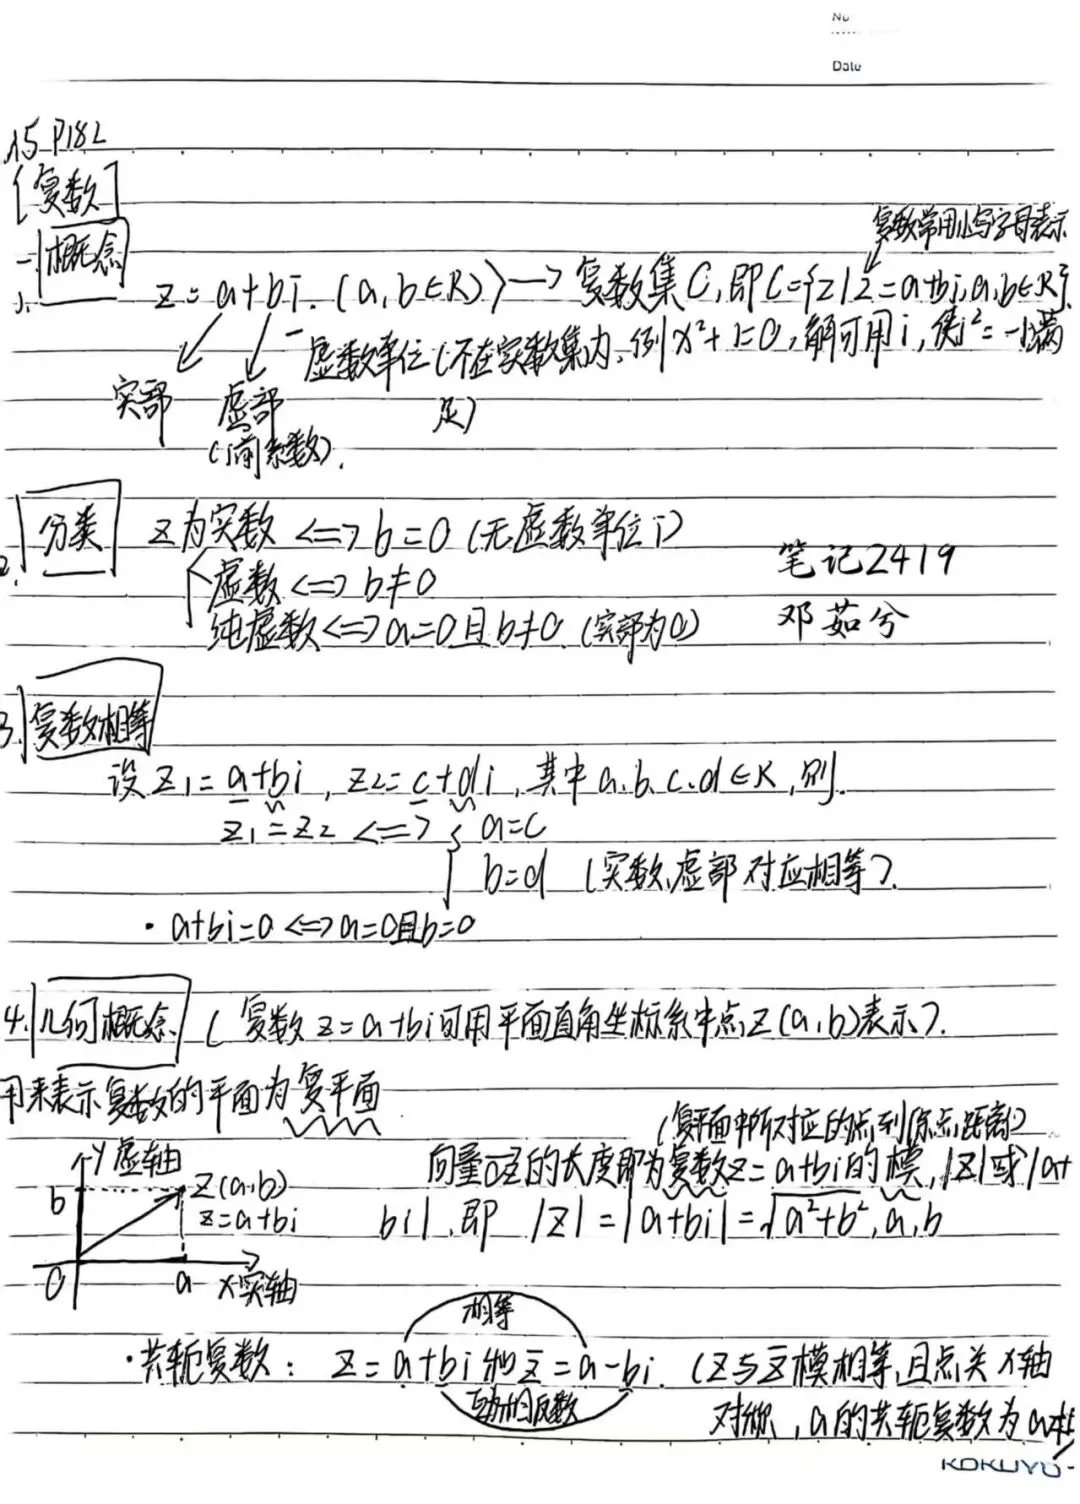 No
Date
A5 P182
[复数]
一.概念
复数常用小写字母表示
1. z=a+bi.(a,b∈R)→复数集C,即C={z|z=a+bi,a,b∈R}.
虚数单位(不在实数集内,例x²+1=0,解可用i,使i²=-1满
实部 虚部 足)
(i前系数).
2. 分类 z为实数<=>b=0(无虚数单位i)
虚数<=>b≠0
笔记2419
纯虚数<=>a=0且b≠0(实部为0)
邓茹兮
3. 复数相等
设z1=a+bi,z2=c+di,其中a.b.c.d∈R,则.
z1=z2<=>{a=c
b=d (实数,虚部对应相等).
·a+bi=0<=>a=0且b=0
4.几何概念(复数z=a+bi可用平面直角坐标系中点Z(a,b)表示).
用来表示复数的平面为复平面
(复平面中所对应的点到原点距离)
y虚轴 向量OZ的长度即为复数z=a+bi的模,|z|或|a+
b Z(a,b)
z=a+bi bi|,即|z|=|a+bi|=√a²+b²,a,b
0 a x实轴
相等
·共轭复数:z=a+bi和z̅=a-bi.(z与z̅模相等,且点关x轴
互为相反数 对称,a的共轭复数为a本
KOKUYO